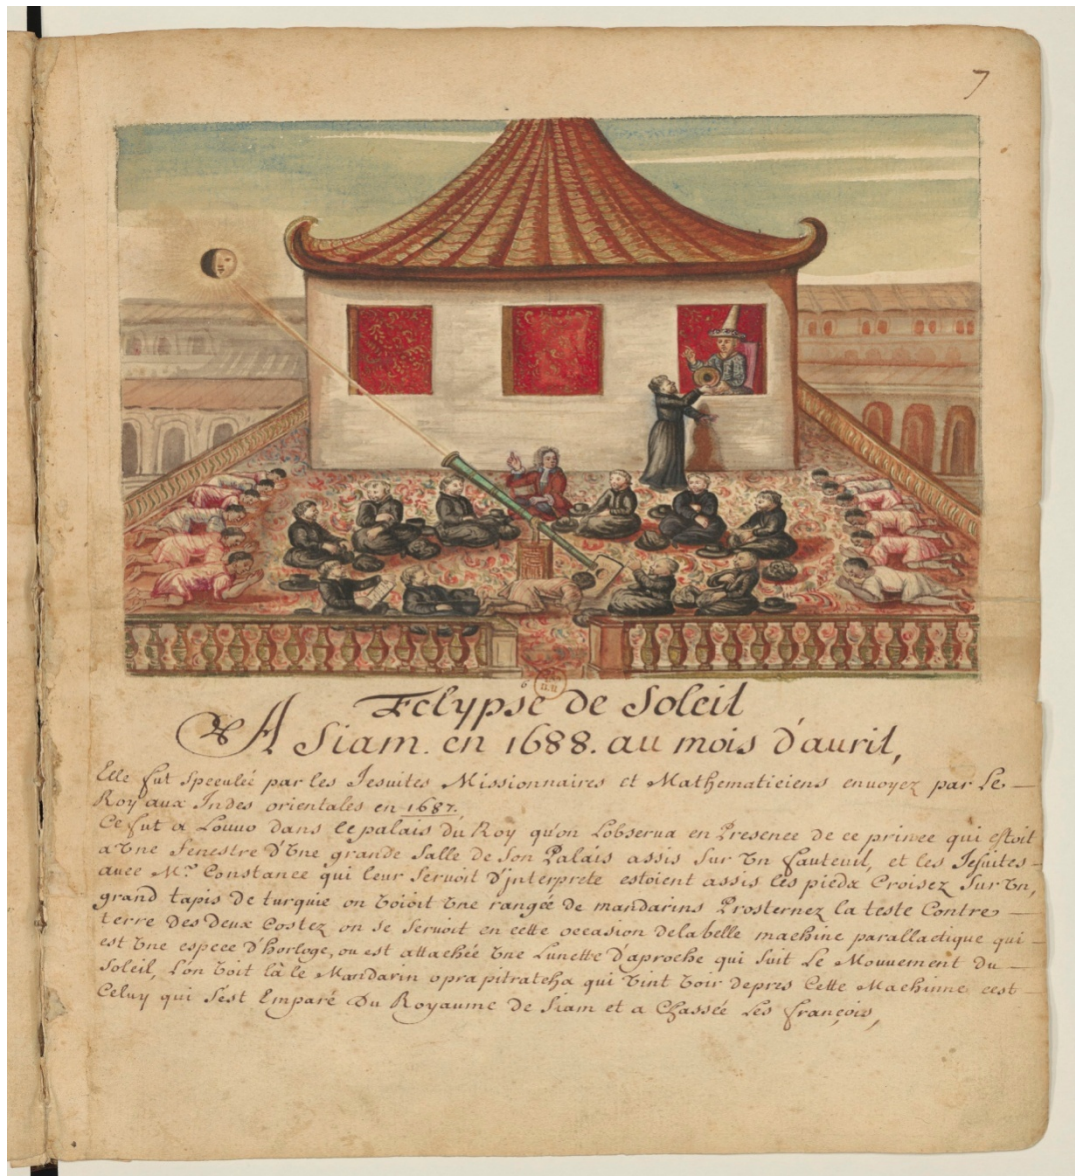 7
Eclypse de Soleil
A Siam. en 1688. au mois d'auril,
Elle fut speculée par les Jesuites Missionnaires et Mathematiciens envoyez par Le
Roy aux Indes orientales en 1687.
Ce fut a Louuo dans le palais du Roy qu'on Lobserua en Presence de ce prince qui estoit
a Vne fenestre d'Vne grande Salle de Son Palais assis Sur Vn fauteuil, et les Jesuites
auec Mr. Constance qui leur Seruoit d'jnterprete estoient assis les piedx Croisez Sur Vn,
grand tapis de turquie on Voioit Vne rangée de mandarins Prosternez la teste Contre
terre des deux Costez on se Seruoit en cette occasion dela belle machine paralladique qui
est Vne espece d'horloge, ou est attachée Vne Lunette d'aproche qui suit Le Mouuement du
Soleil, L'on Voit là le Mandarin oprapitratcha qui Vint Voir depres Cette Machinne cest
Celuy qui S'est Emparé Du Royaume de Siam et a Chassée Les françois,